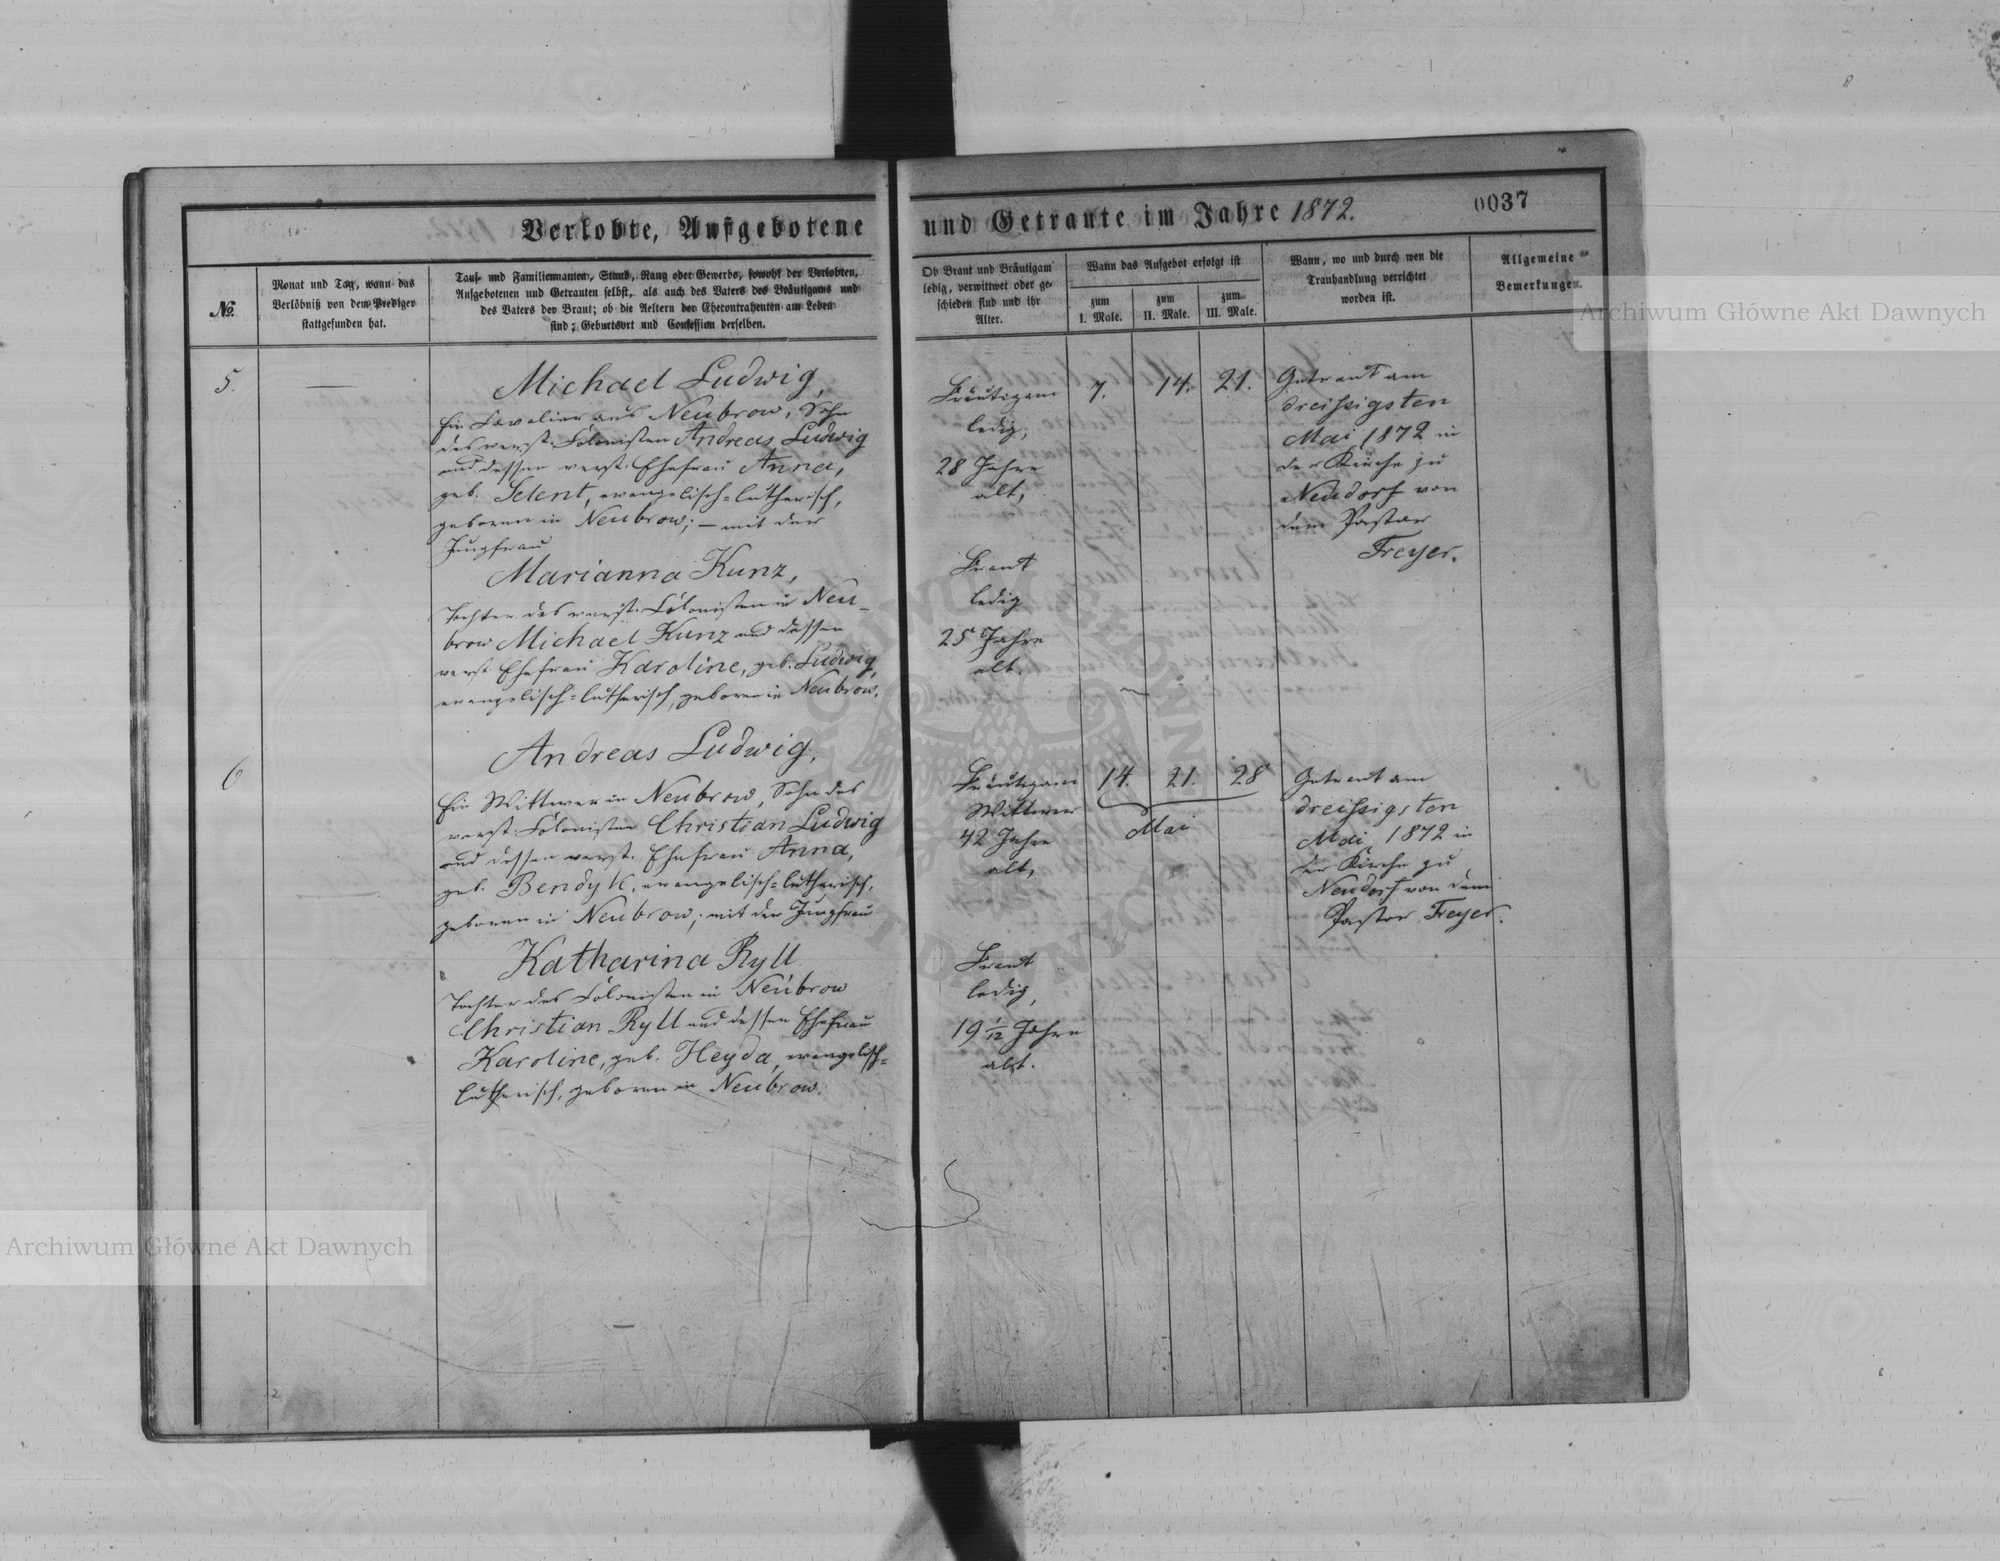 Verlobte, Aufgebotene und Getraute im Jahre 1872.
0037
№
Monat und Tag, wann das
Verlöbniß von dem Prediger
stattgefunden hat.
Tauf- und Familiennamen, Stand, Rang oder Gewerbe, sowohl der Verlobten,
Aufgebotenen und Getrauten selbst, als auch des Vaters des Bräutigams und
des Vaters der Braut; ob die Aeltern der Ehecontrahenten am Leben
sind; Geburtsort und Confession derselben.
Ob Braut und Bräutigam
ledig, verwittwet oder ge-
schieden sind und ihr
Alter.
Wann das Aufgebot erfolgt ist
zum
I. Male.
zum
II. Male.
zum
III. Male.
Wann, wo und durch wen die
Trauhandlung verrichtet
worden ist.
Allgemeine
Bemerkungen.
5.
—
Michael Ludwig,
Ein Cavalier aus Neubrow, Sohn
des verst. Colonisten Andreas Ludwig
und dessen verst. Ehefrau Anna,
geb. Selent, evangelisch=lutherisch,
geboren in Neubrow; — mit der
Jungfrau
Marianna Kunz,
Tochter des verst. Colonisten in Neu-
brow Michael Kunz und dessen
verst. Ehefrau Karoline, geb. Ludwig,
evangelisch=lutherisch, geboren in Neubrow.
Bräutigam
ledig,
28 Jahre
alt,
Braut
ledig
25 Jahre
alt.
7. 14. 21.
Getraut am
dreißigsten
Mai 1872 in
der Kirche zu
Neudorf von
dem Pastor
Freyer.
6
Andreas Ludwig,
Ein Wittwer in Neubrow, Sohn des
verst. Colonisten Christian Ludwig
und dessen verst. Ehefrau Anna,
geb. Bendyk, evangelisch=lutherisch,
geboren in Neubrow; mit der Jungfrau
Katharina Ryll
Tochter des Colonisten in Neubrow
Christian Ryll und dessen Ehefrau
Karoline, geb. Heyda, evangelisch=
lutherisch, geboren in Neubrow.
Bräutigam
Wittwer
42 Jahre
alt,
Braut
ledig,
19 1/12 Jahre
alt.
14. 21. 28
Mai
Getraut am
dreißigsten
Mai 1872 in
der Kirche zu
Neudorf von dem
Pastor Freyer.
Archiwum Główne Akt Dawnych
Archiwum Główne Akt Dawnych